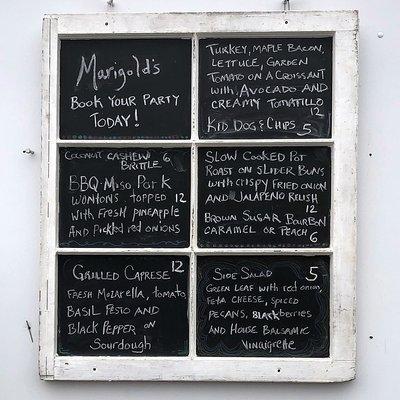 Marigold's
Book Your Party
Today!
Turkey, Maple Bacon,
Lettuce, Garden
Tomato on a Croissant
with Avocado and
Creamy Tomatillo
12
Kid Dog & Chips 5
Coconut Cashew 6
Brittle
BBQ-Miso Pork
Wontons topped 12
with Fresh pineapple
and Pickled red onions
Slow Cooked Pot
Roast on Slider Buns
with crispy fried onion
and Jalapeno Relish
12
Brown Sugar Bourbon
Caramel or Peach 6
Grilled Caprese 12
Fresh Mozarella, tomato,
Basil Pesto and
Black Pepper on
Sourdough
Side Salad 5
Green Leaf with red onion,
Feta cheese, spiced
pecans, Blackberries
and House Balsamic
Vinaigrette